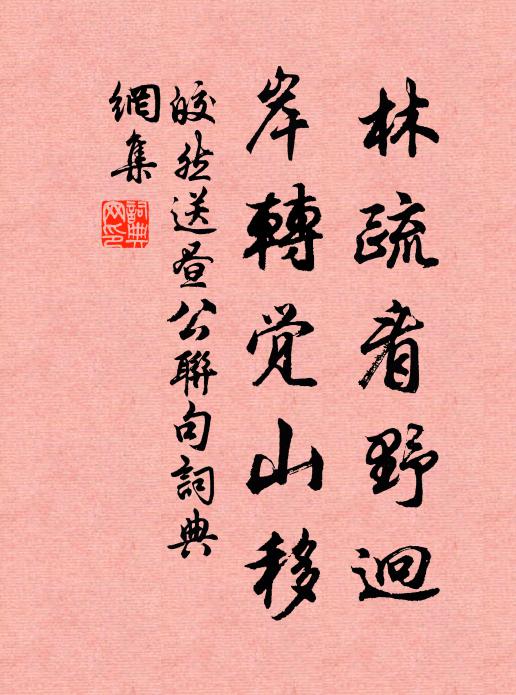 林疏看野迥
岸轉覺山移
皎然送晝公聯句詞典
網集
詞典
网印